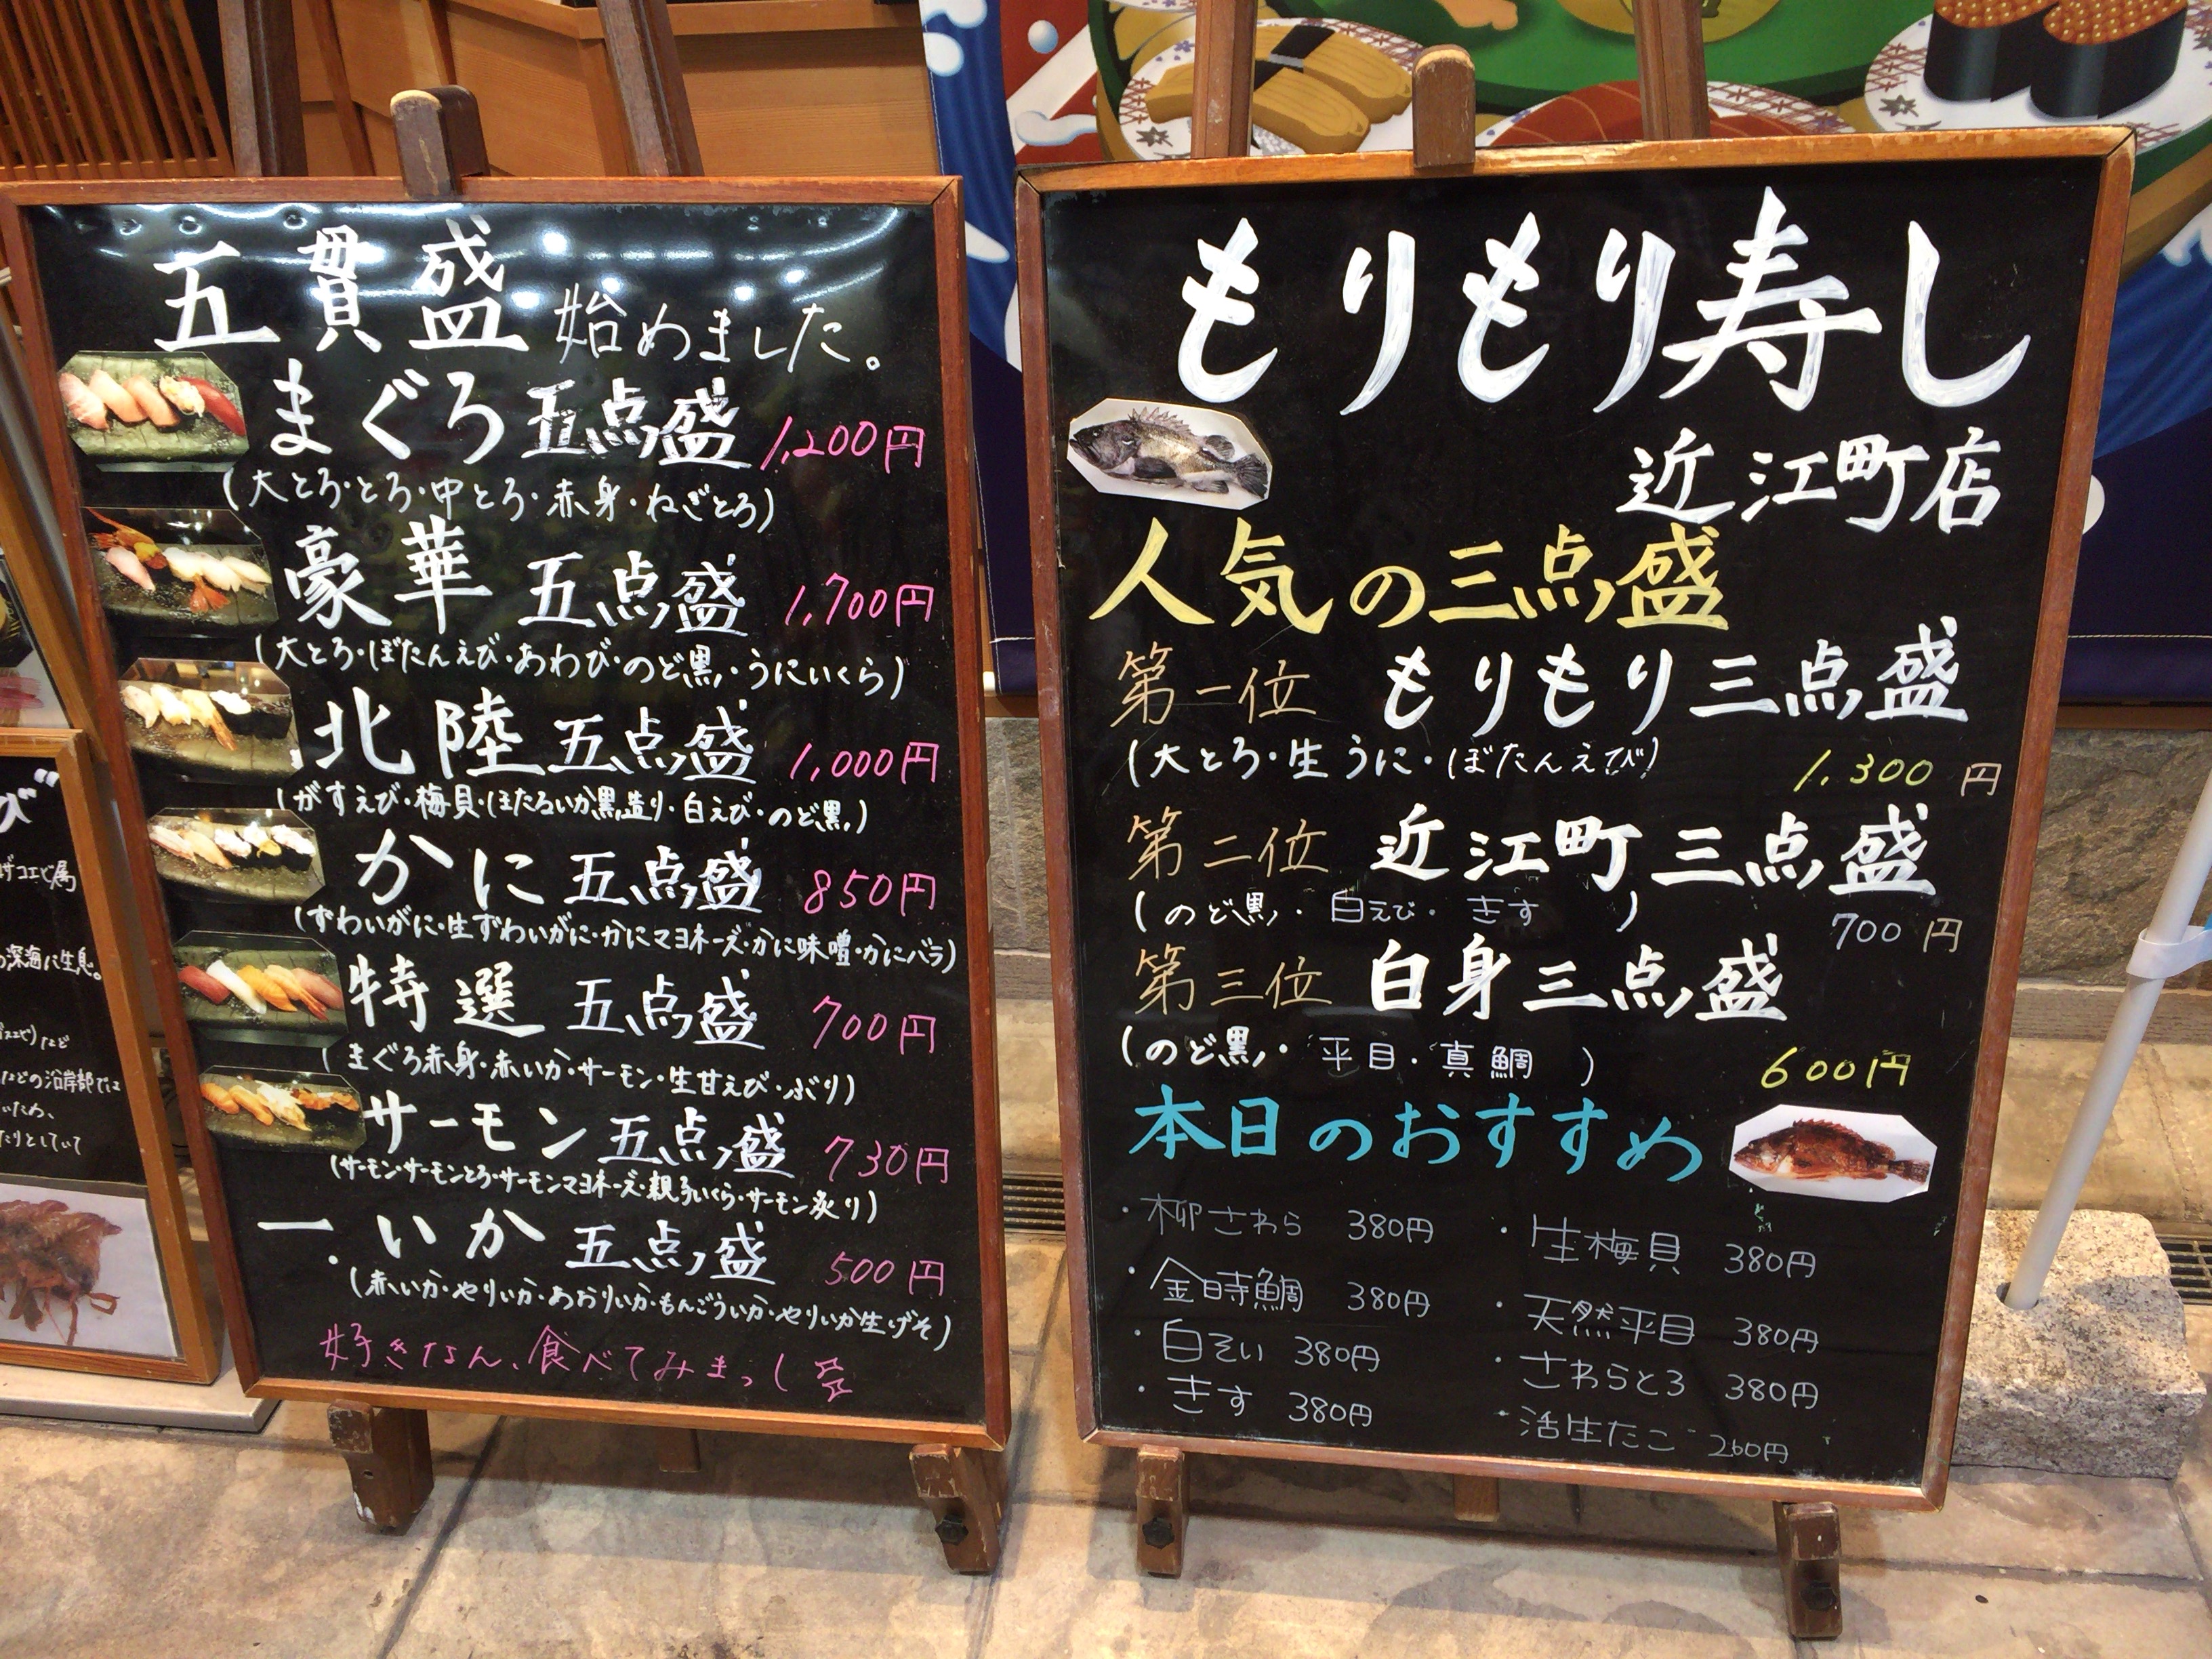 五貫盛 始めました。
まぐろ五点盛 1,200円
(大とろ・とろ・中とろ・赤身・ねぎとろ)
豪華 五点盛 1,700円
(大とろ・ぼたんえび・あわび・のど黒・うにいくら)
北陸 五点盛 1,000円
(がすえび・梅貝・ほたるいか黒造り・白えび・のど黒)
かに 五点盛 850円
(ずわいがに・生ずわいがに・かにマヨネーズ・かに味噌・かにバラ)
特選 五点盛 700円
(まぐろ赤身・赤いか・サーモン・生甘えび・ぶり)
サーモン五点盛 730円
(サーモン・サーモンとろ・サーモンマヨネーズ・親子いくら・サーモン炙り)
一.いか 五点盛 500円
(赤いか・やりいか・あおりいか・もんごういか・やりいか生げそ)
好きなん、食べてみまっし
もりもり寿し
近江町店
人気の三点盛
第一位 もりもり三点盛
(大とろ・生うに・ぼたんえび) 1,300円
第二位 近江町三点盛
(のど黒・白えび・きす) 700円
第三位 白身三点盛
(のど黒・平目・真鯛) 600円
本日のおすすめ
・柳さわら 380円
・金時鯛 380円
・白そい 380円
・きす 380円
・生梅貝 380円
・天然平目 380円
・さわらとろ 380円
・活生たこ 260円
び"
ザコエビ属
の深海に生息。
などの沿岸部では
たりとしていて